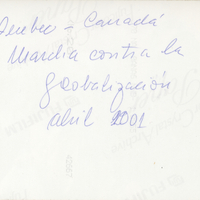 Quebec - Canadá
Marcha contra la
globalización
abril 2001